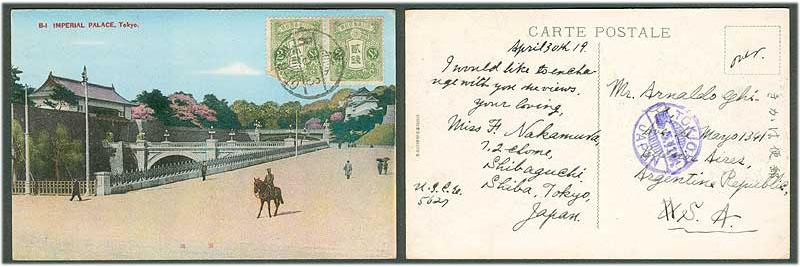 B-1 IMPERIAL PALACE, Tokyo.
CARTE POSTALE
April 30th 19.
I would like to encha-
nge with you reviews.
your loving,
Miss F. Nakamura,
7.2 chome,
Shibaguchi
Shiba, Tokyo,
Japan.
over.
Mr. Arnaldo Ghi-
Mayo 1341
Aires,
Argentine Republic,
U.S.A.
TOKYO
JAPAN
きかは便郵